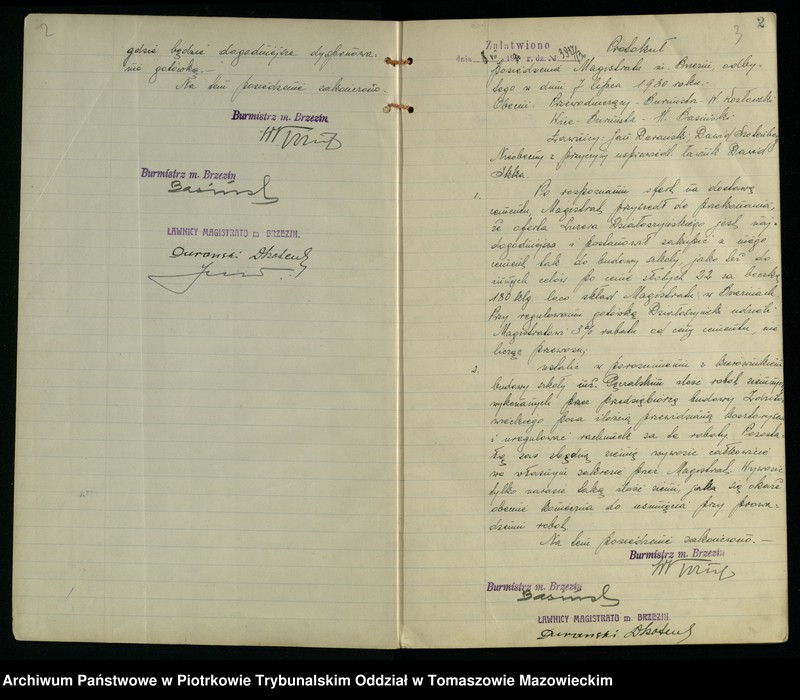 2
gdzie będzie dogodniejsze dysponowa-
nie gotówką.—
Na tem posiedzenie zakończono.
Burmistrz m. Brzezin
Burmistrz m. Brzezin
Basiński
ŁAWNICY MAGISTRATU m. BRZEZIN.
Durański
2
3
Załatwiono
dnia 193 r. dz. №
Protokuł
Posiedzenia Magistratu m. Brzezin odby-
tego w dniu 7 lipca 1930 roku.-
Obecni: Przewodniczący - Burmistrz - W.
Wice-Burmistrz - Basiński
Ławnicy: Jan Durański, Dawid
Nieobecny z przyczyn usprawiedl. ławnik Dawid
1. Po rozpoznaniu ofert na dostawę
cementu, Magistrat przyszedł do przekonania,
że oferta Działoszyńskiego jest naj-
dogodniejsza i postanowił zakupić z niego
cement tak do budowy szkoły jako też do
innych celów po cenie złotych 22 za beczkę
180 klg. loco skład Magistratu w Brzezinach.
Przy regulowaniu gotówką Działoszyński udzieli
Magistratowi 3% rabatu od ceny cementu, nie
licząc przewozu;
2. ustalić w porozumieniu z kierownikiem
budowy szkoły inż. ilość robót ziemnych
wykonanych przez przedsiębiorcę budowy
poza ilością przewidzianą kosztorysem
i uregulować rachunek za te roboty. Pozosta-
łą zaś zbędną ziemię wywozić całkowicie
we własnym zakresie przez Magistrat. Wywozić
tylko narazie taką ilość ziemi, jaka się okaże
obecnie konieczna do usunięcia przy prowa-
dzeniu robót.
Na tem posiedzenie zakończono.—
Burmistrz m. Brzezin
Burmistrz m. Brzezin
Basiński
ŁAWNICY MAGISTRATU m. BRZEZIN.
Durański
Archiwum Państwowe w Piotrkowie Trybunalskim Oddział w Tomaszowie Mazowieckim